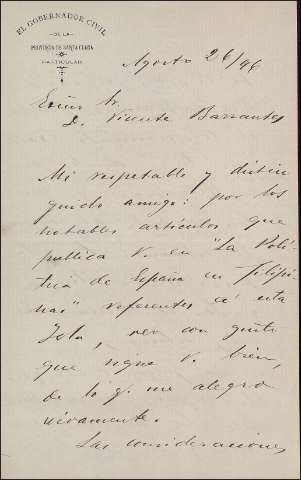 EL GOBERNADOR CIVIL
DE LA
PROVINCIA DE SANTA CLARA
PARTICULAR
Agosto 26/96
Excmo Sr.
D. Vicente Barrantes
Mi respetable y distin
guido amigo: por los
notables artículos que
publica V. en "La Polí
tica de España en Filipi
nas" referentes á esta
Isla, veo con gusto
que sigue V. bien,
de lo q. me alegro
vivamente.
Las consideraciones